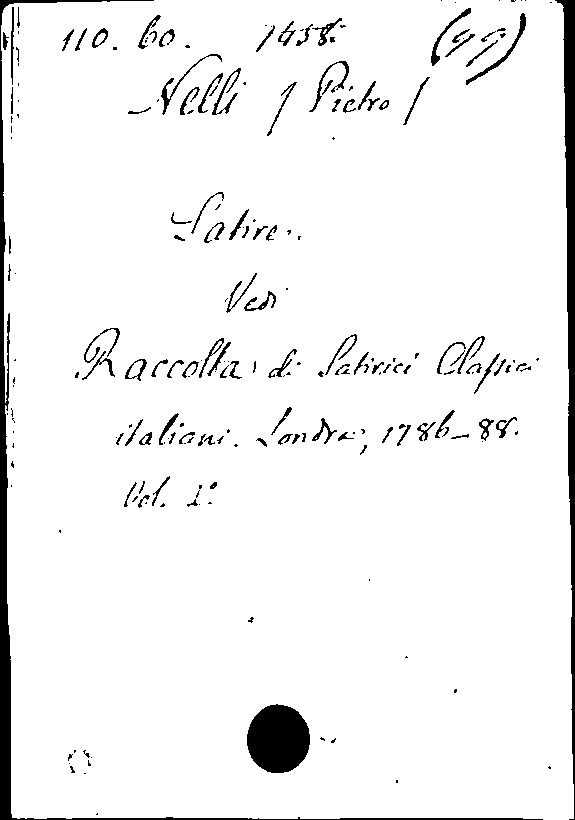 110. 60. 1458.
Nelli / Pietro /
Satire.
Vedi
Raccolta di Satirici Classici
italiani. Londra, 1786-88.
Vol. 1º